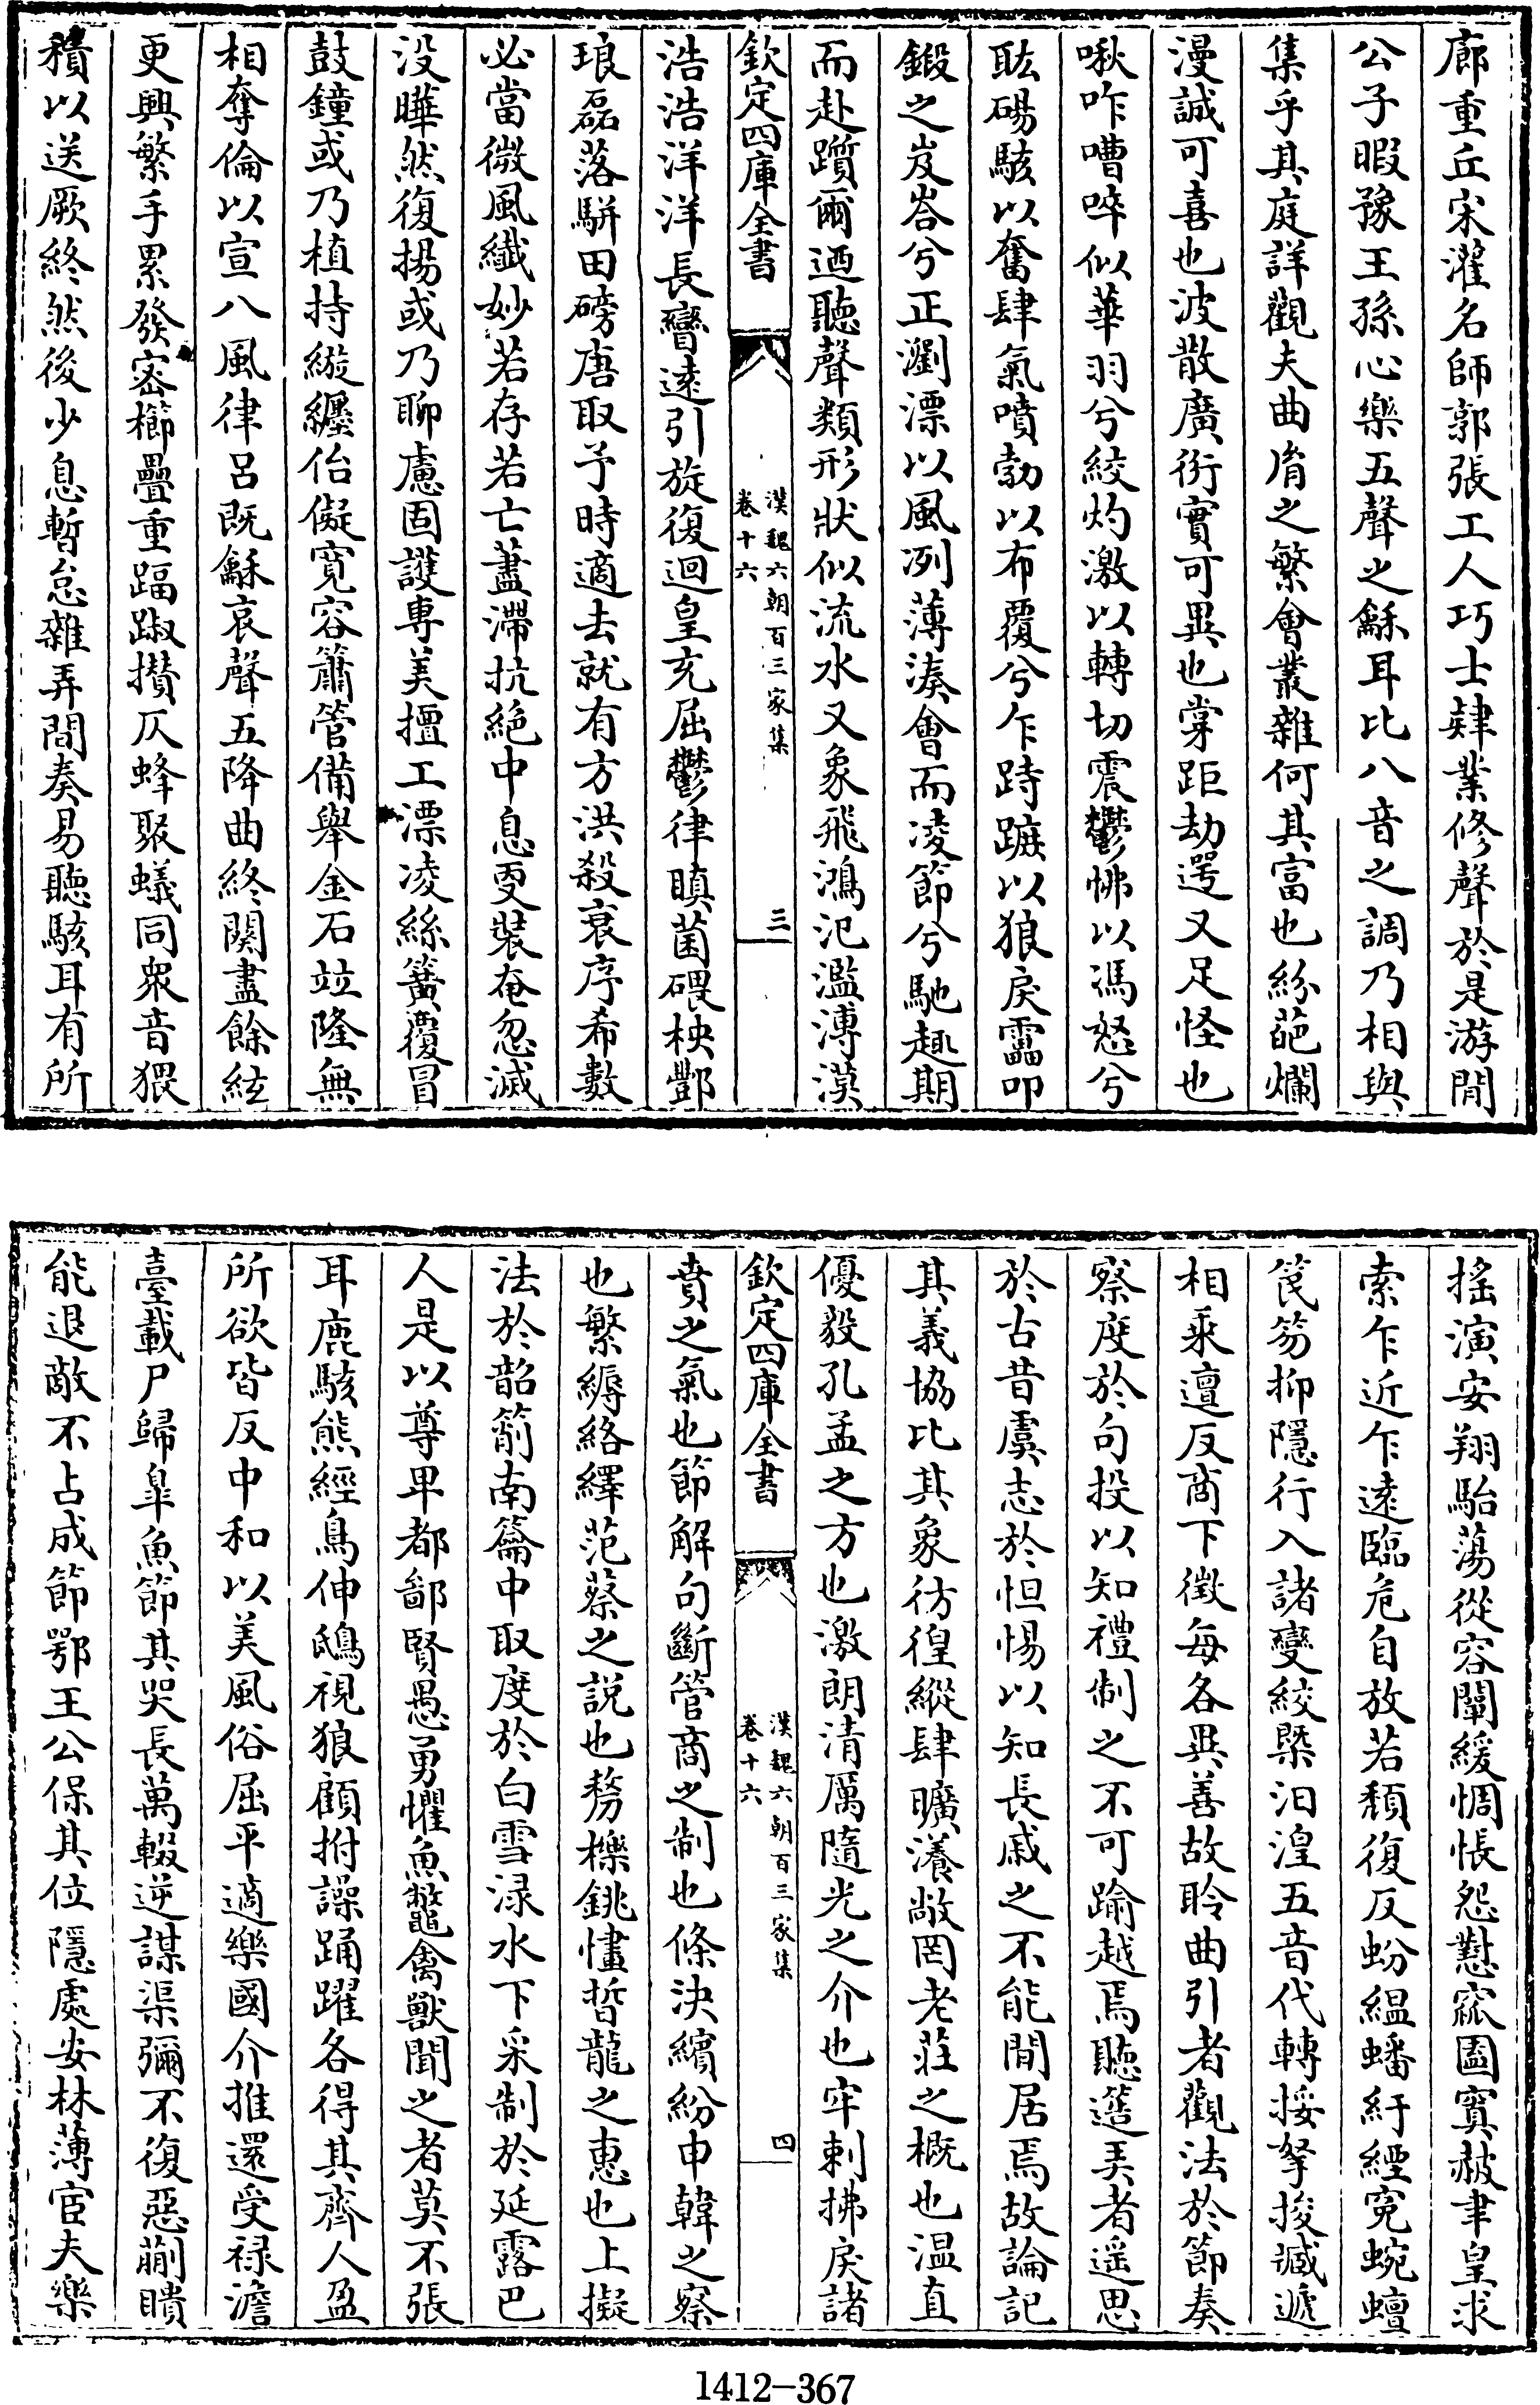 廊重丘宋灌名師郭張工人巧士肄業修聲於是游閒
公子暇豫王孫心樂五聲之龢耳比八音之調乃相與
集乎其庭詳觀夫曲胤之繁會叢雜何其富也紛葩爛
漫誠可喜也波散廣衍實可異也掌距劫遻又足怪也
啾咋嘈啐似華羽兮絞灼激以轉切震鬱怫以馮怒兮
耾碭駭以奮肆氣噴勃以布覆兮乍跱蹠以狼戾靁叩
鍛之岌峇兮正瀏漂以風冽薄湊會而凌節兮馳趣期
而赴躓爾迺聽聲類形狀似流水又象飛鴻氾濫溥漠
欽定四庫全書
漢魏六朝百三家集
卷十六
三
浩浩洋洋長矕遠引旋復迴皇充屈鬱律瞋菌碨柍酆
琅磊落駢田磅唐取予時適去就有方洪殺衰序希數
必當微風纖妙若存若亡藎滯抗絶中息更裝奄忽滅
没曄然復揚或乃聊慮固護専美擅工漂凌絲簧覆冒
鼓鐘或乃植持縼纆佁儗寛容簫管備舉金石竝隆無
相奪倫以宣八風律吕既龢哀聲五降曲終闋盡餘絃
更興繁手累發密櫛疊重踾踧攢仄蜂聚蟻同衆音猥
積以送厥終然後少息暫怠雜弄間奏易聽駭耳有所
搖演安翔駘蕩從容闡緩惆悵怨懟窳圔窴赧聿皇求
索乍近乍遠臨危自放若頽復反蚡緼蟠紆緸寃蜿蟺
笢笏抑隱行入諸變絞槩汩湟五音代轉挼拏捘臧遞
相乘邅反商下徵每各異善故聆曲引者觀法於節奏
察度於句投以知禮制之不可踰越焉聽簉弄者遥思
於古昔虞志於怛惕以知長戚之不能閒居焉故論記
其義協比其象彷徨縱肆曠瀁敞罔老莊之概也温直
優毅孔孟之方也激朗清厲隨光之介也牢剌拂戾諸
欽定四庫全書
漢魏六朝百三家集
卷十六
四
賁之氣也節解句斷管商之制也條決繽紛申韓之察
也繁縟絡繹范蔡之説也剺櫟銚㦎晳龍之惠也上擬
法於韶箾南籥中取度於白雪渌水下采制於延露巴
人是以尊卑都鄙賢愚勇懼魚鼈禽獸聞之者莫不張
耳鹿駭熊經鳥伸鴟視狼顧拊譟踊躍各得其齊人盈
所欲皆反中和以美風俗屈平適樂國介推還受禄澹
臺載尸歸臯魚節其哭長萬輟逆謀渠彌不復惡蒯聵
能退敵不占成節鄂王公保其位隱處安林薄宦夫樂
1412-367